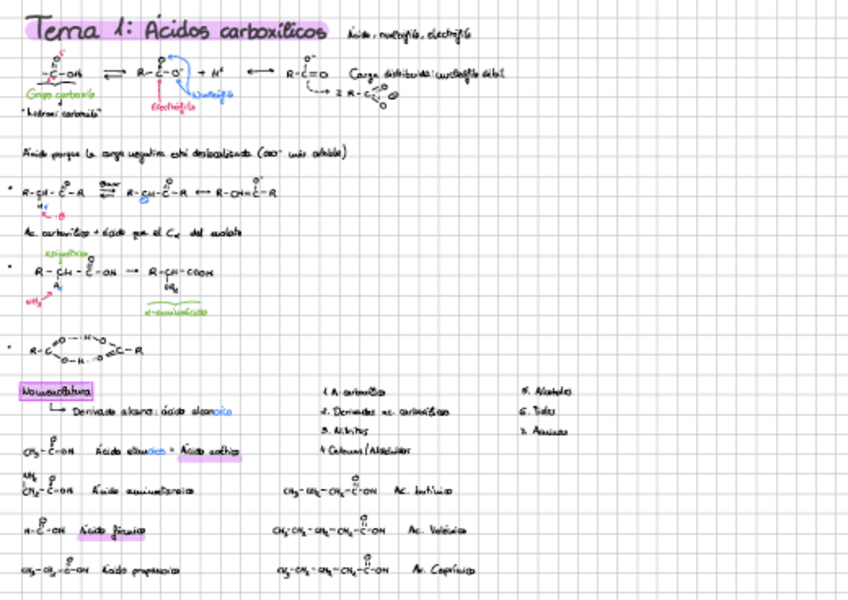 Tema 1: Ácidos carboxílicos
Ácido, nucleófilo, electrófilo
-C-OH ⇌ R-C-O⁻ + H⁺ ↔ R-C=O Carga distribuida: nucleófilo débil
Grupo carboxilo
Nucleófilo
Electrófilo
"hidroxi carbonilo"
Ácido porque la carga negativa está deslocalizada (COO⁻ más estable)
R-CH-C-R ⇌ R-CH-C-R ↔ R-CH=C-R
Ac. carboxílico + ácido que el Cα del enolato
R-CH-C-OH → R-CH-COOH
NH₃
α-aminoácido
R-C C-R
Nomenclatura
Derivado alcano: ácido alcanoico
1. A. carboxílico
2. Derivados ac. carboxílico
3. Nitrilos
4. Cetonas/Aldehídos
5. Alcoholes
6. Tioles
7. Aminas
CH₃-C-OH Ácido etanoico = Ácido acético
CH₂-C-OH Ácido aminoetanoico
H-C-OH Ácido fórmico
CH₃-CH₂-C-OH Ácido propanoico
CH₃-CH₂-CH₂-C-OH Ac. butírico
CH₃-CH₂-CH₂-CH₂-C-OH Ac. Valérico
Ac. Caproico